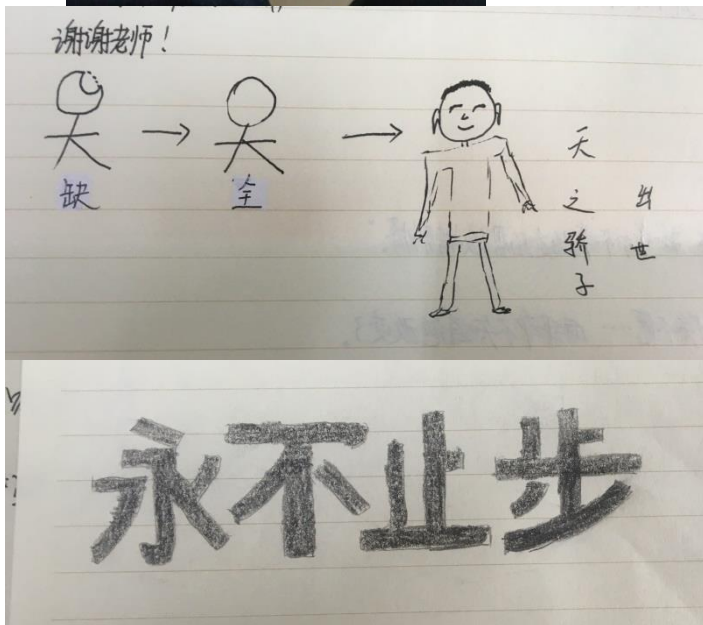 谢谢老师！
缺
全
天之骄子
出世
永不止步